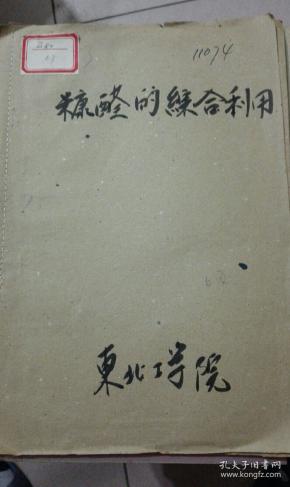 11074
糠醛的綜合利用
東北工学院
孔夫子旧书网